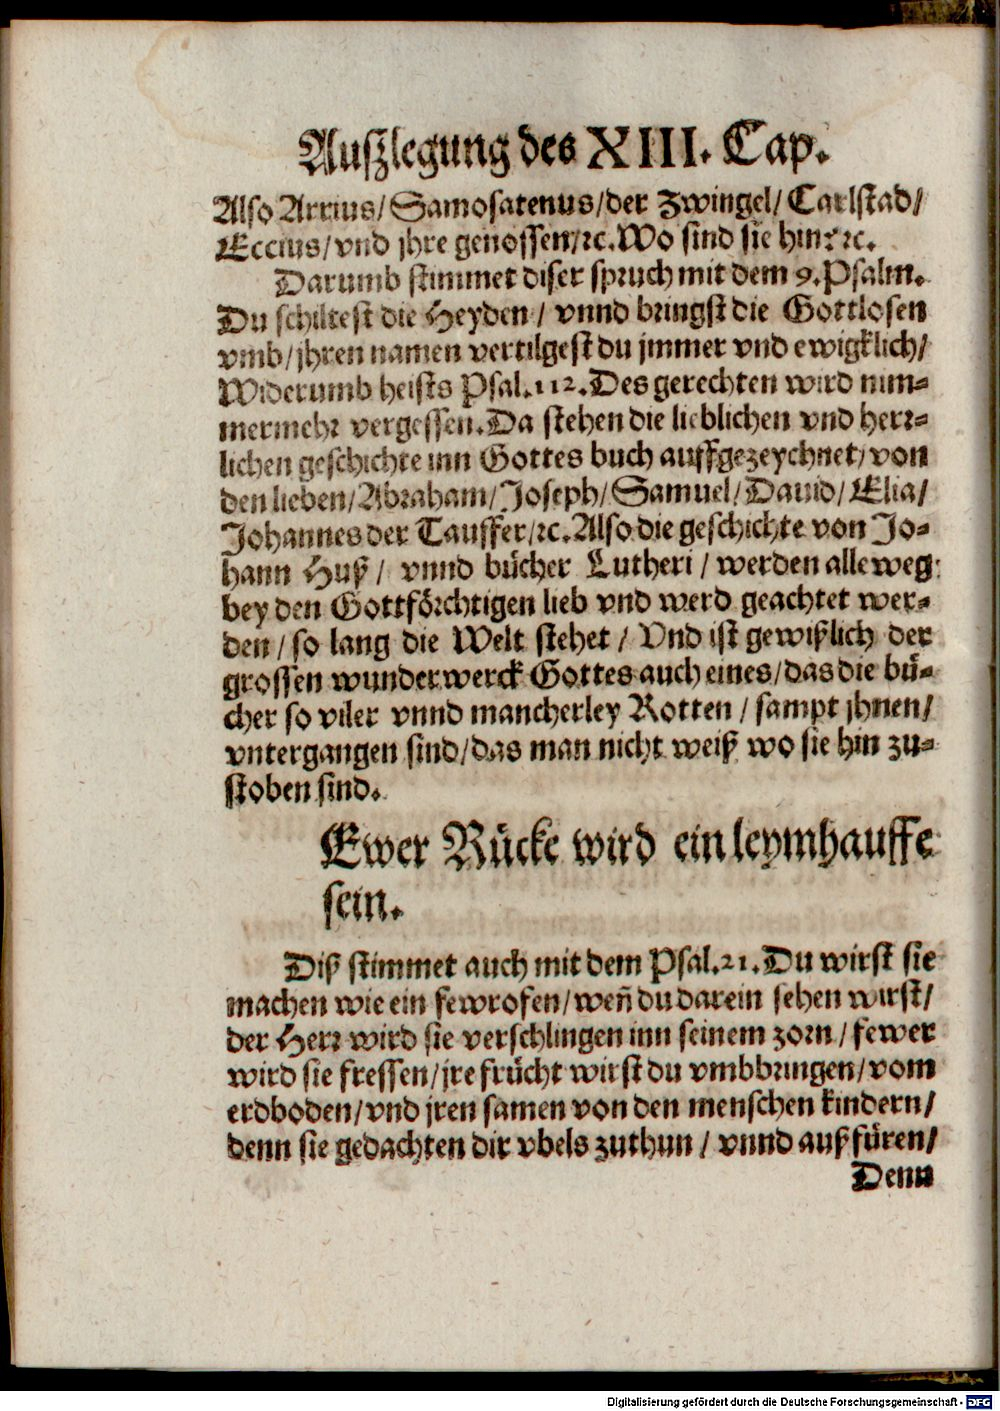 Auſzlegung des XIII. Cap.
Alſo Arrius/ Samoſatenus/ der Zwingel/ Carlſtad/
Eccius/ vnd jhre genoſſen/ ꝛc. Wo ſind ſie hin? ꝛc.
Darumb ſtimmet diſer ſpruch mit dem 9. Pſalm.
Du ſchilteſt die Heyden/ vnnd bringſt die Gottloſen
vmb/ jhren namen vertilgeſt du jmmer vnd ewigklich/
Widerumb heiſts Pſal. 112. Des gerechten wird nim⸗
mermehr vergeſſen. Da ſtehen die lieblichen vnd herr⸗
lichen geſchichte inn Gottes buch auffgezeychnet/ von
den lieben/ Abraham/ Joſeph/ Samuel/ Dauid/ Elia/
Johannes der Tauffer/ ꝛc. Alſo die geſchichte von Jo⸗
hann Huß/ vnnd bücher Lutheri/ werden alleweg
bey den Gottförchtigen lieb vnd werd geachtet wer⸗
den/ ſo lang die Welt ſtehet/ Vnd iſt gewißlich der
groſſen wunderwerck Gottes auch eines/ das die bü⸗
cher ſo viler vnnd mancherley Rotten/ ſampt jhnen/
vntergangen ſind/ das man nicht weiß wo ſie hin zu⸗
ſtoben ſind.
Ewer Rücke wird ein leymhauffe
ſein.
Diß ſtimmet auch mit dem Pſal. 21. Du wirſt ſie
machen wie ein fewrofen/ weñ du darein ſehen wirſt/
der Herr wird ſie verſchlingen inn ſeinem zorn/ fewer
wird ſie freſſen/ jre frücht wirſt du vmbbringen/ vom
erdboden/ vnd jren ſamen von den menſchen kindern/
denn ſie gedachten dir vbels zuthun/ vnnd außfüren/
Denn
Digitalisierung gefördert durch die Deutsche Forschungsgemeinschaft - DFG